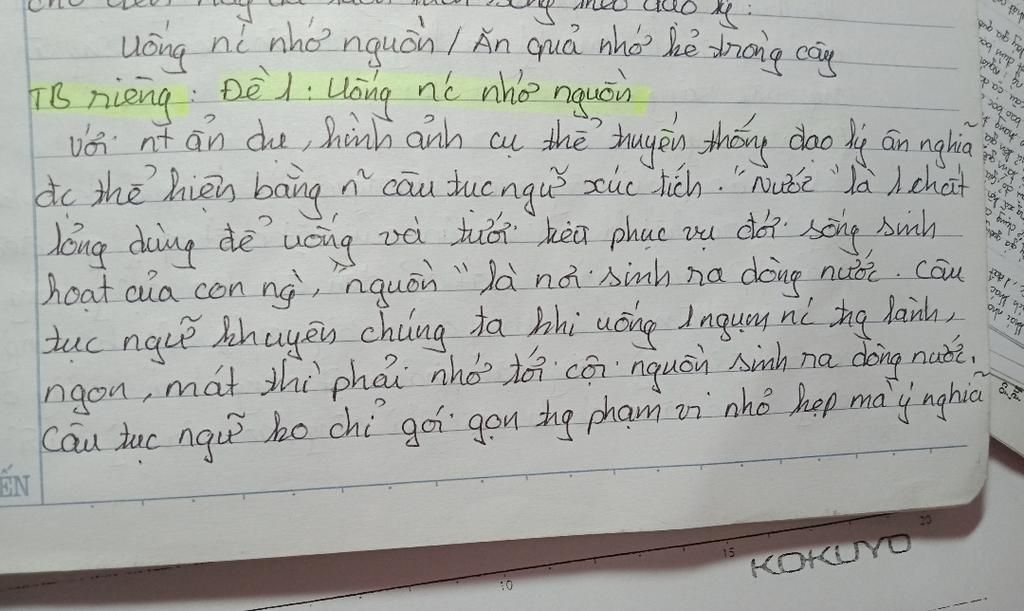 này sống theo đạo lý:
Uống nc nhớ nguồn / Ăn quả nhớ kẻ trồng cây
TB riêng: Đề 1: Uống nc nhớ nguồn
Với nt ẩn dụ, hình ảnh cụ thể truyền thống đạo lý ân nghĩa
đc thể hiện bằng n~ câu tục ngữ xúc tích. "Nước" là 1 chất
lỏng dùng để uống và tưới tiêu phục vụ đời sống sinh
hoạt của con ng`, "nguồn" là nơi sinh ra dòng nước. Câu
tục ngữ khuyên chúng ta khi uống 1 ngụm nc tg lành,
ngon, mát thì phải nhớ tới cội nguồn sinh ra dòng nước.
Câu tục ngữ ko chỉ gói gọn tg phạm vi nhỏ hẹp mà ý nghĩa
ẾN
10 15 20
KOKUYO